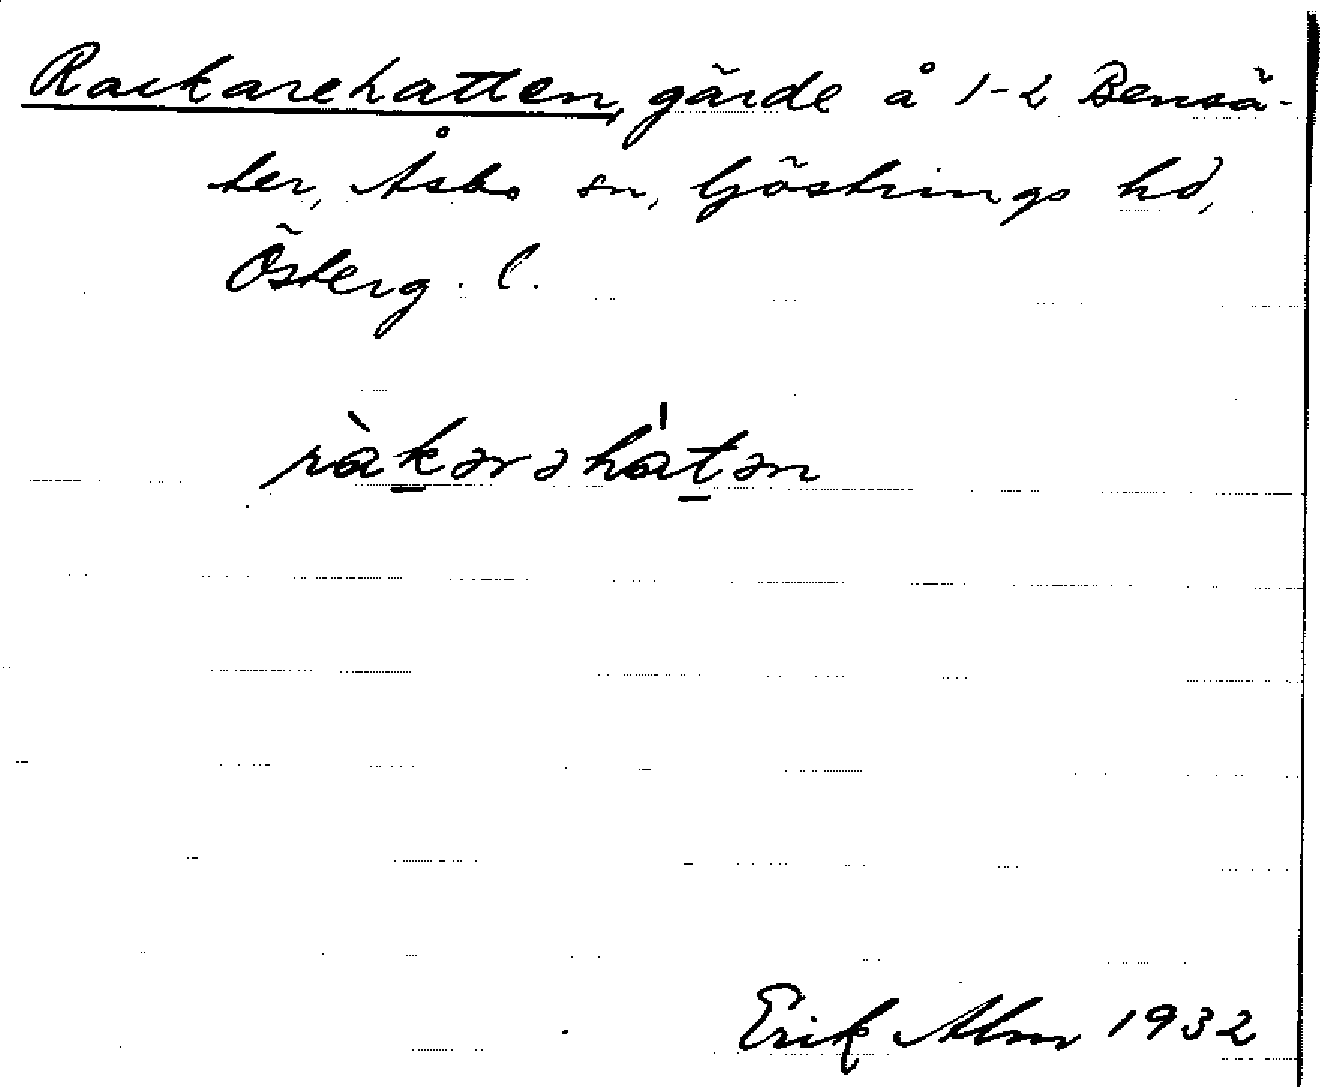 Rackarehatten, gärde å 1-2 Bensä-
ter, Åsbo sn, Göstrings hd,
Österg. l.
ràkarəhàtən
Erik Alm 1932